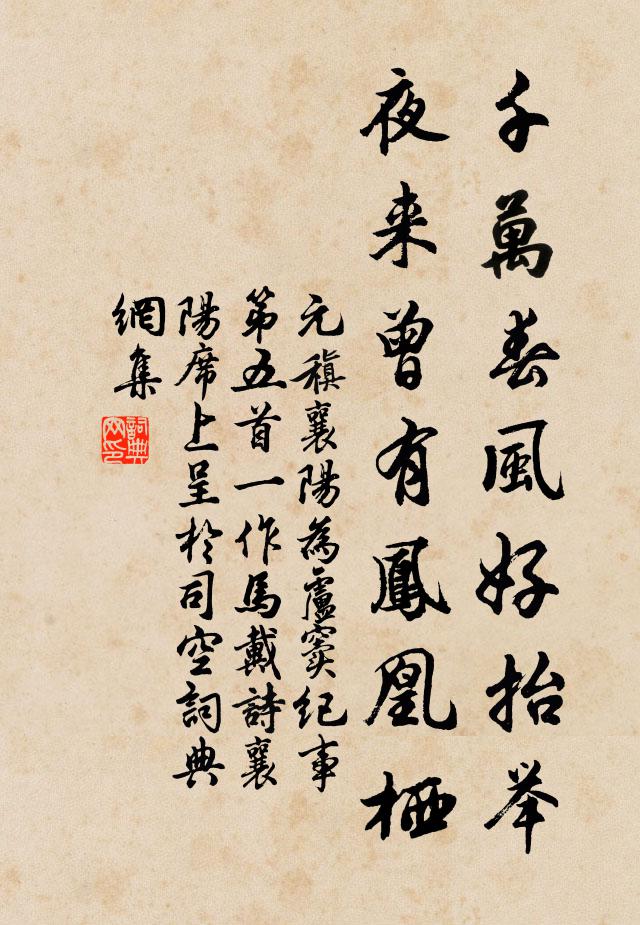 千萬春風好抬举
夜来曾有鳳凰栖
元稹襄陽為盧竇纪事
第五首一作馬戴詩襄
陽席上呈於司空詞典
網集
詞典
网印